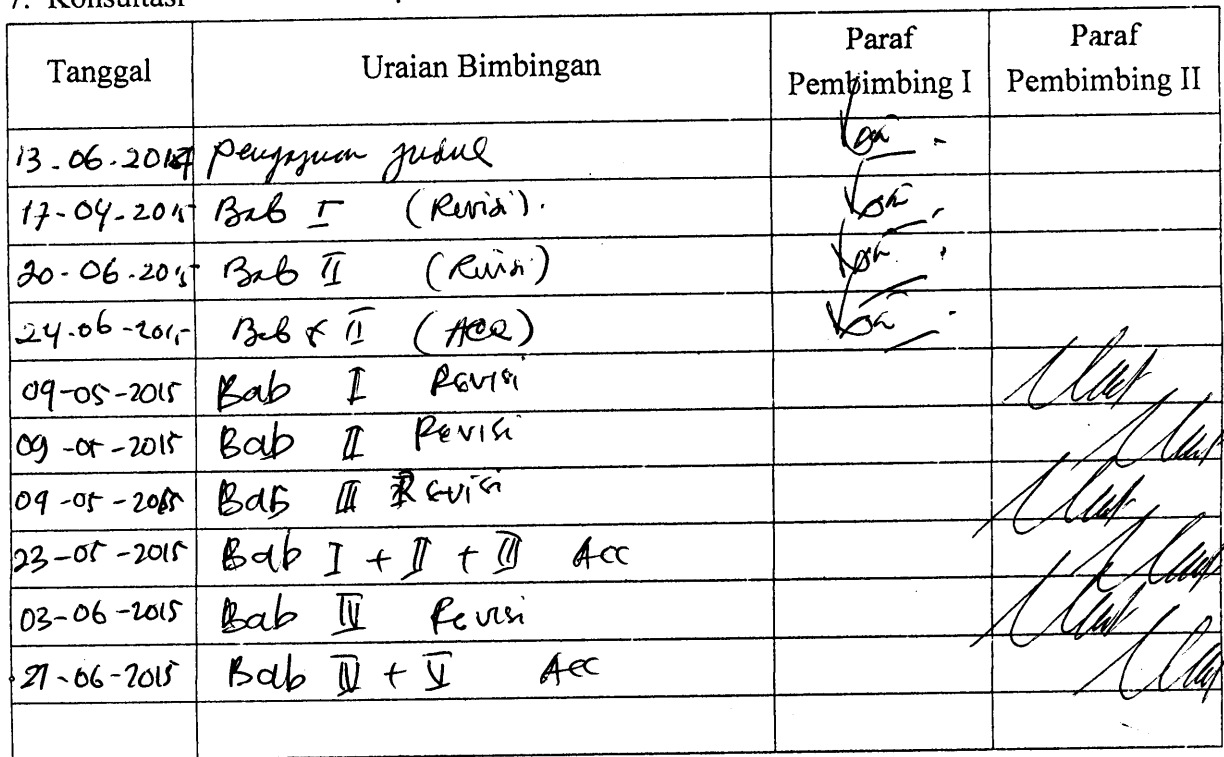 7. Konsultasi
Tanggal Uraian Bimbingan Paraf Pembimbing I Paraf Pembimbing II
13-06-2014 pengajuan judul
17-04-2015 Bab I (Revisi).
20-06-2015 Bab II (Revisi)
24-06-2015 Bab II (ACC)
09-05-2015 Bab I Revisi
09-05-2015 Bab II Revisi
09-05-2015 Bab III Revisi
23-05-2015 Bab I + II + III Acc
03-06-2015 Bab IV Revisi
21-06-2015 Bab IV + V Acc